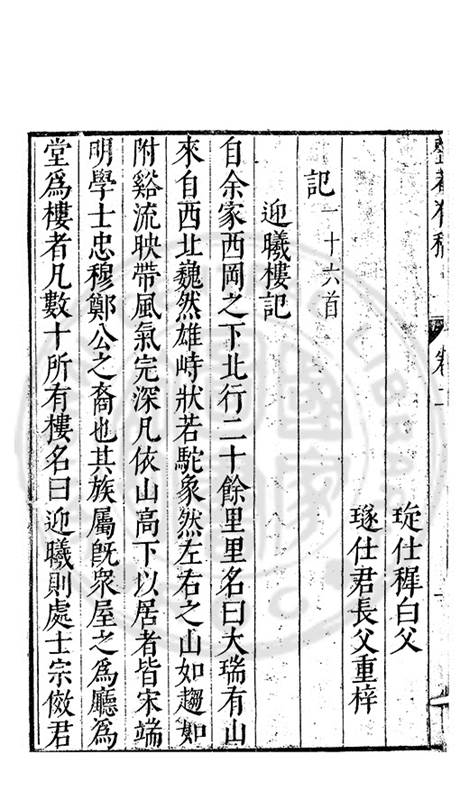 整菴存稿 卷二
琁仕穉白父
璲仕君長父重梓
記一十六首
迎曦樓記
自余家西岡之下北行二十餘里里名曰大瑞有山
來自西北巍然雄峙狀若駝象然左右之山如趨如
附谿流映帶風氣完深凡依山高下以居者皆宋端
明學士忠穆鄭公之裔也其族屬旣衆屋之爲廳爲
堂爲樓者凡數十所有樓名曰迎曦則處士宗傚君